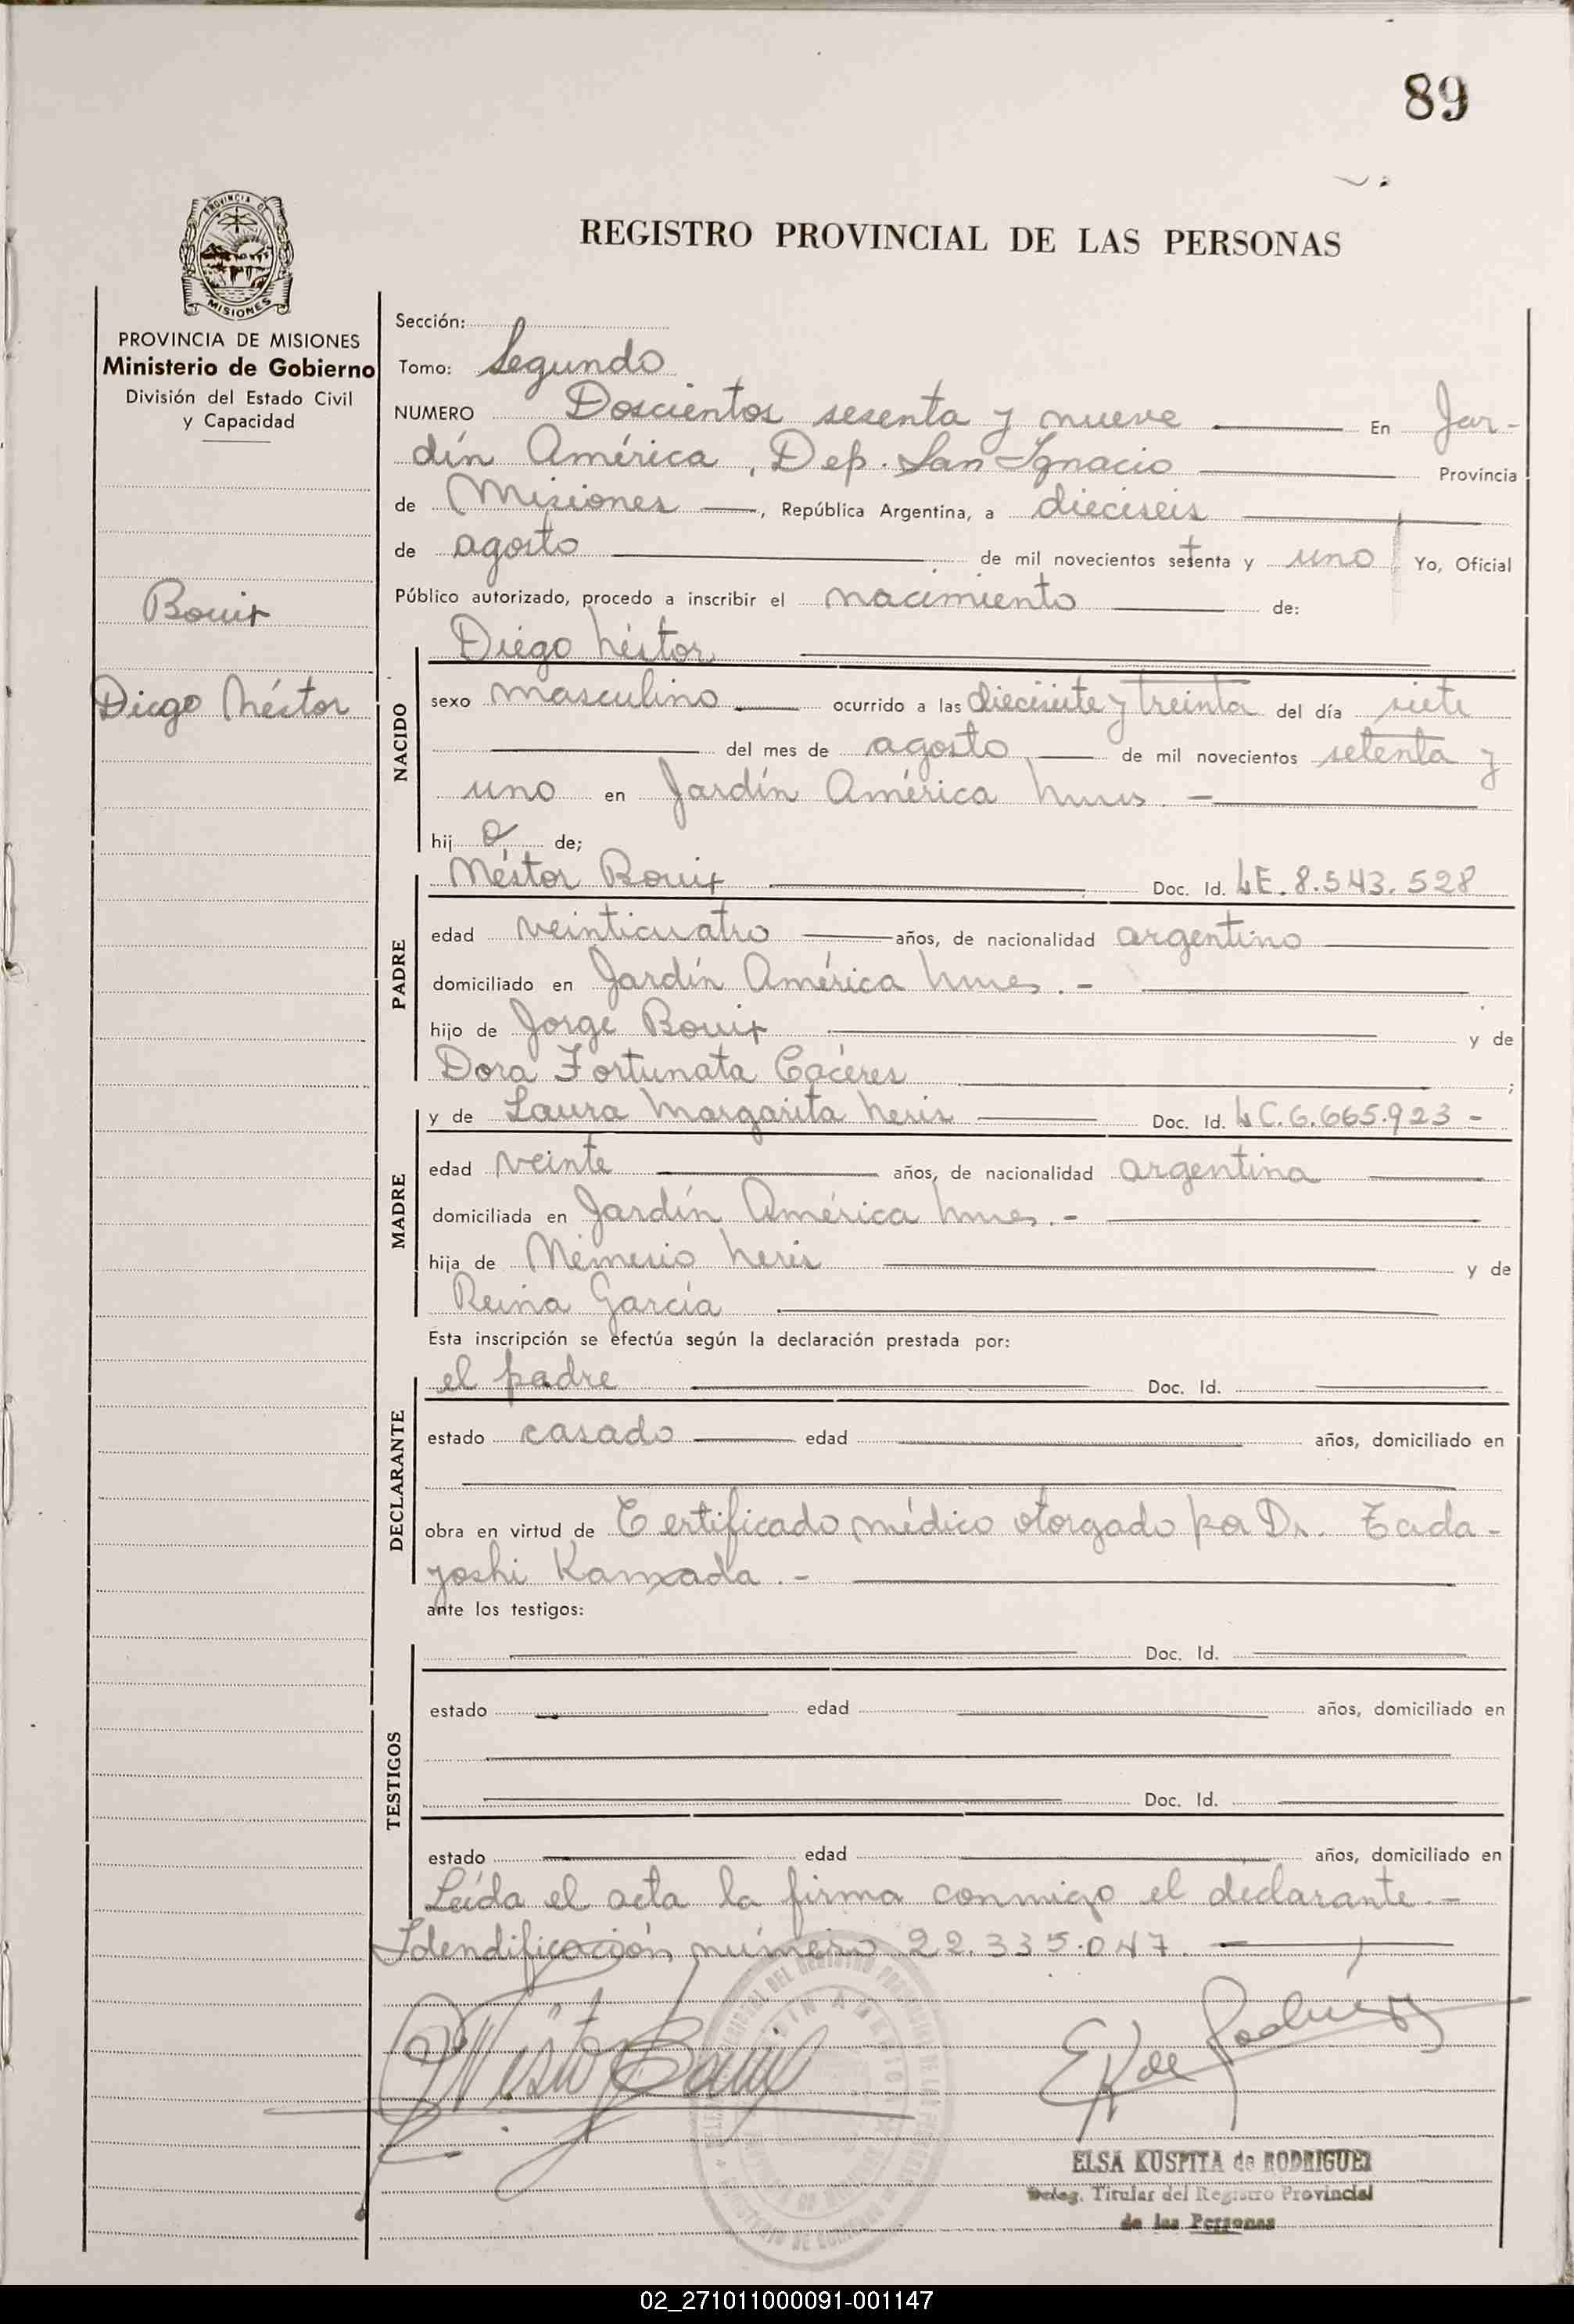 89
REGISTRO PROVINCIAL DE LAS PERSONAS
PROVINCIA DE MISIONES
Ministerio de Gobierno
División del Estado Civil
y Capacidad
Bouix
Diego Néstor
Sección:
Tomo: Segundo
NUMERO Doscientos sesenta y nueve En Jar-
dín América, Dep. San Ignacio Provincia
de Misiones, República Argentina, a dieciseis
de agosto de mil novecientos setenta y uno Yo, Oficial
Público autorizado, procedo a inscribir el nacimiento de:
Diego Néstor
NACIDO
sexo masculino ocurrido a las diecisiete y treinta del día siete
del mes de agosto de mil novecientos setenta y
uno en Jardín América Mnes. -
hij o de;
PADRE
Néstor Bouix Doc. Id. LE. 8.543.528
edad veinticuatro años, de nacionalidad argentino
domiciliado en Jardín América Mnes. -
hijo de Jorge Bouix y de
Dora Fortunata Cáceres ;
MADRE
y de Laura Margarita Neris Doc. Id. LC. 6.665.923 -
edad veinte años, de nacionalidad argentina
domiciliada en Jardín América Mnes. -
hija de Némesio Neris y de
Reina García
Esta inscripción se efectúa según la declaración prestada por:
DECLARANTE
el padre Doc. Id.
estado casado edad años, domiciliado en
obra en virtud de Certificado médico otorgado por Dr. Tada-
yoshi Kamada. -
ante los testigos:
TESTIGOS
Doc. Id.
estado edad años, domiciliado en
Doc. Id.
estado edad años, domiciliado en
Leída el acta la firma conmigo el declarante. -
Idendificación número 22.335.047.
Néstor Bouix
E K de Rodríguez
ELSA KUSPITA de RODRIGUEZ
Deleg. Titular del Registro Provincial
de las Personas
02_271011000091-001147